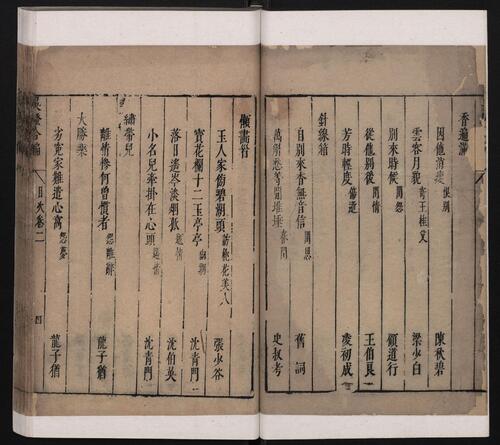 香遍滿
因他消瘦 恨別 陳秋碧
雲窓月戶 寄王桂父 梁少白
別來時候 閨怨 顧道行
從他別後 閨情 王伯良
芳時輕度 傷逝 凌初成
針線箱
自別來杳無音信 閨思 舊詞
萬別愁等閒堆垜 春閨 史叔考
懶畵眉
玉人家傍碧湖頭 訪桃花美人 張少谷
寳花欄十二玉亭亭 幽期 沈青門
落日遙岑淡烟孤 沈伯英
小名兒牽掛在心頭 題情 沈青門
繡帶兒
離情慘何曾慣者 怨離詞 龍子猶
大勝樂
劣冤家難遣心窩 怨夢 龍子猶
目次卷二
四